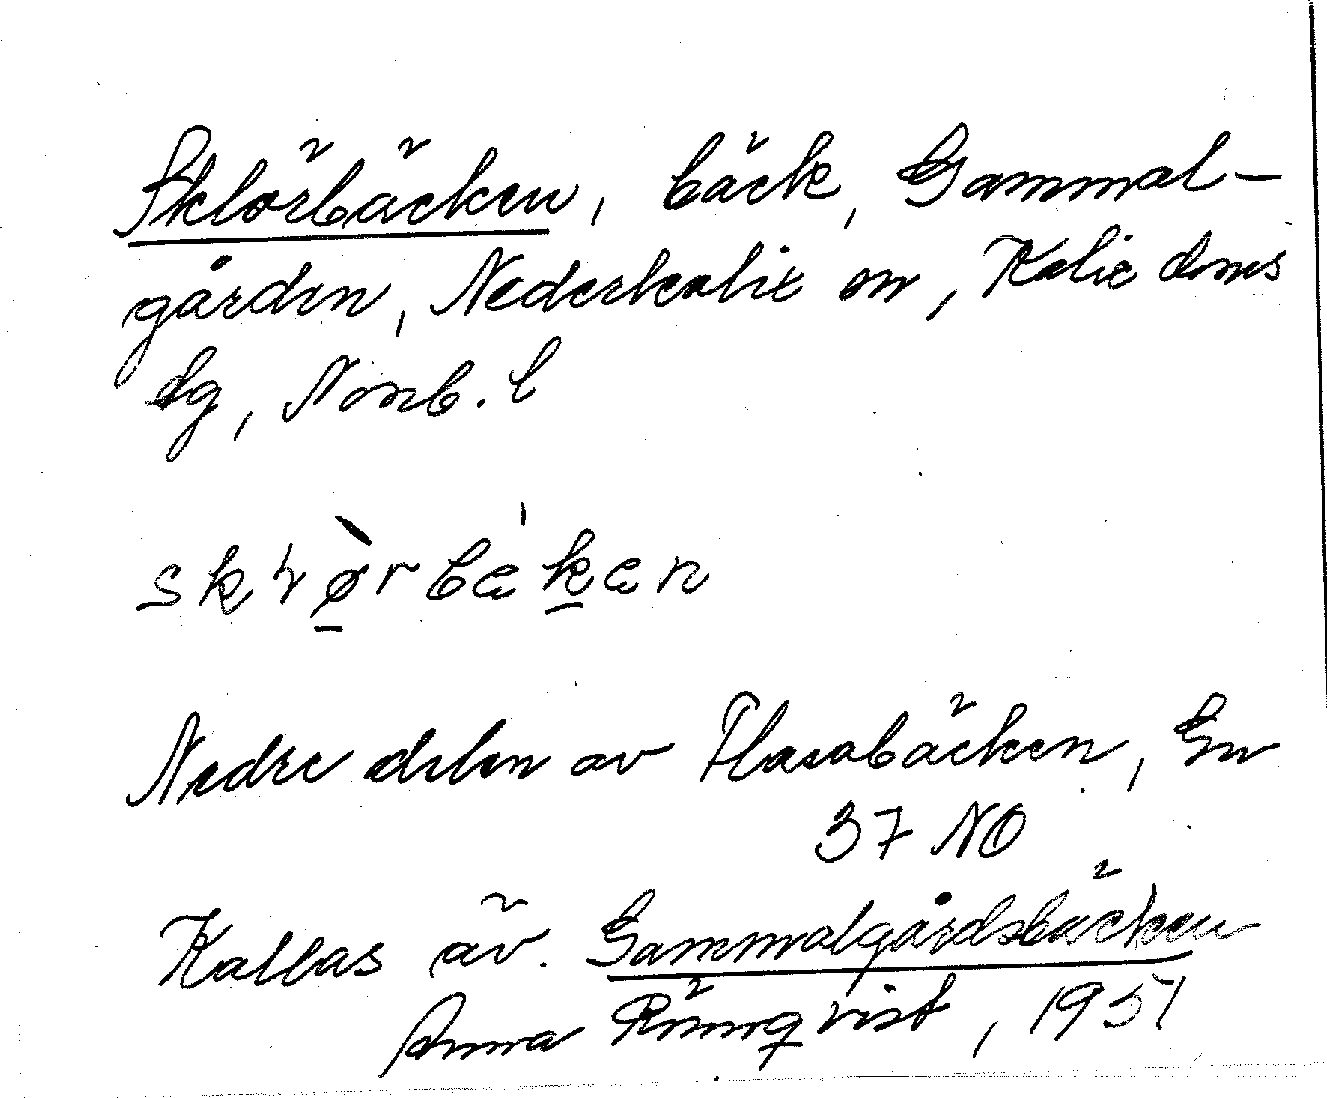 Sklörbäcken, bäck, Gammal-
gården, Nederkalix sn, Kalix doms
dg, Norrb. l
skɽø̀rbɛ́kɛn
Nedre delen av Flasabäcken, En
37 NO
Kallas äv. Gammalgårdsbäcken
Anna Rönnqvist, 1951